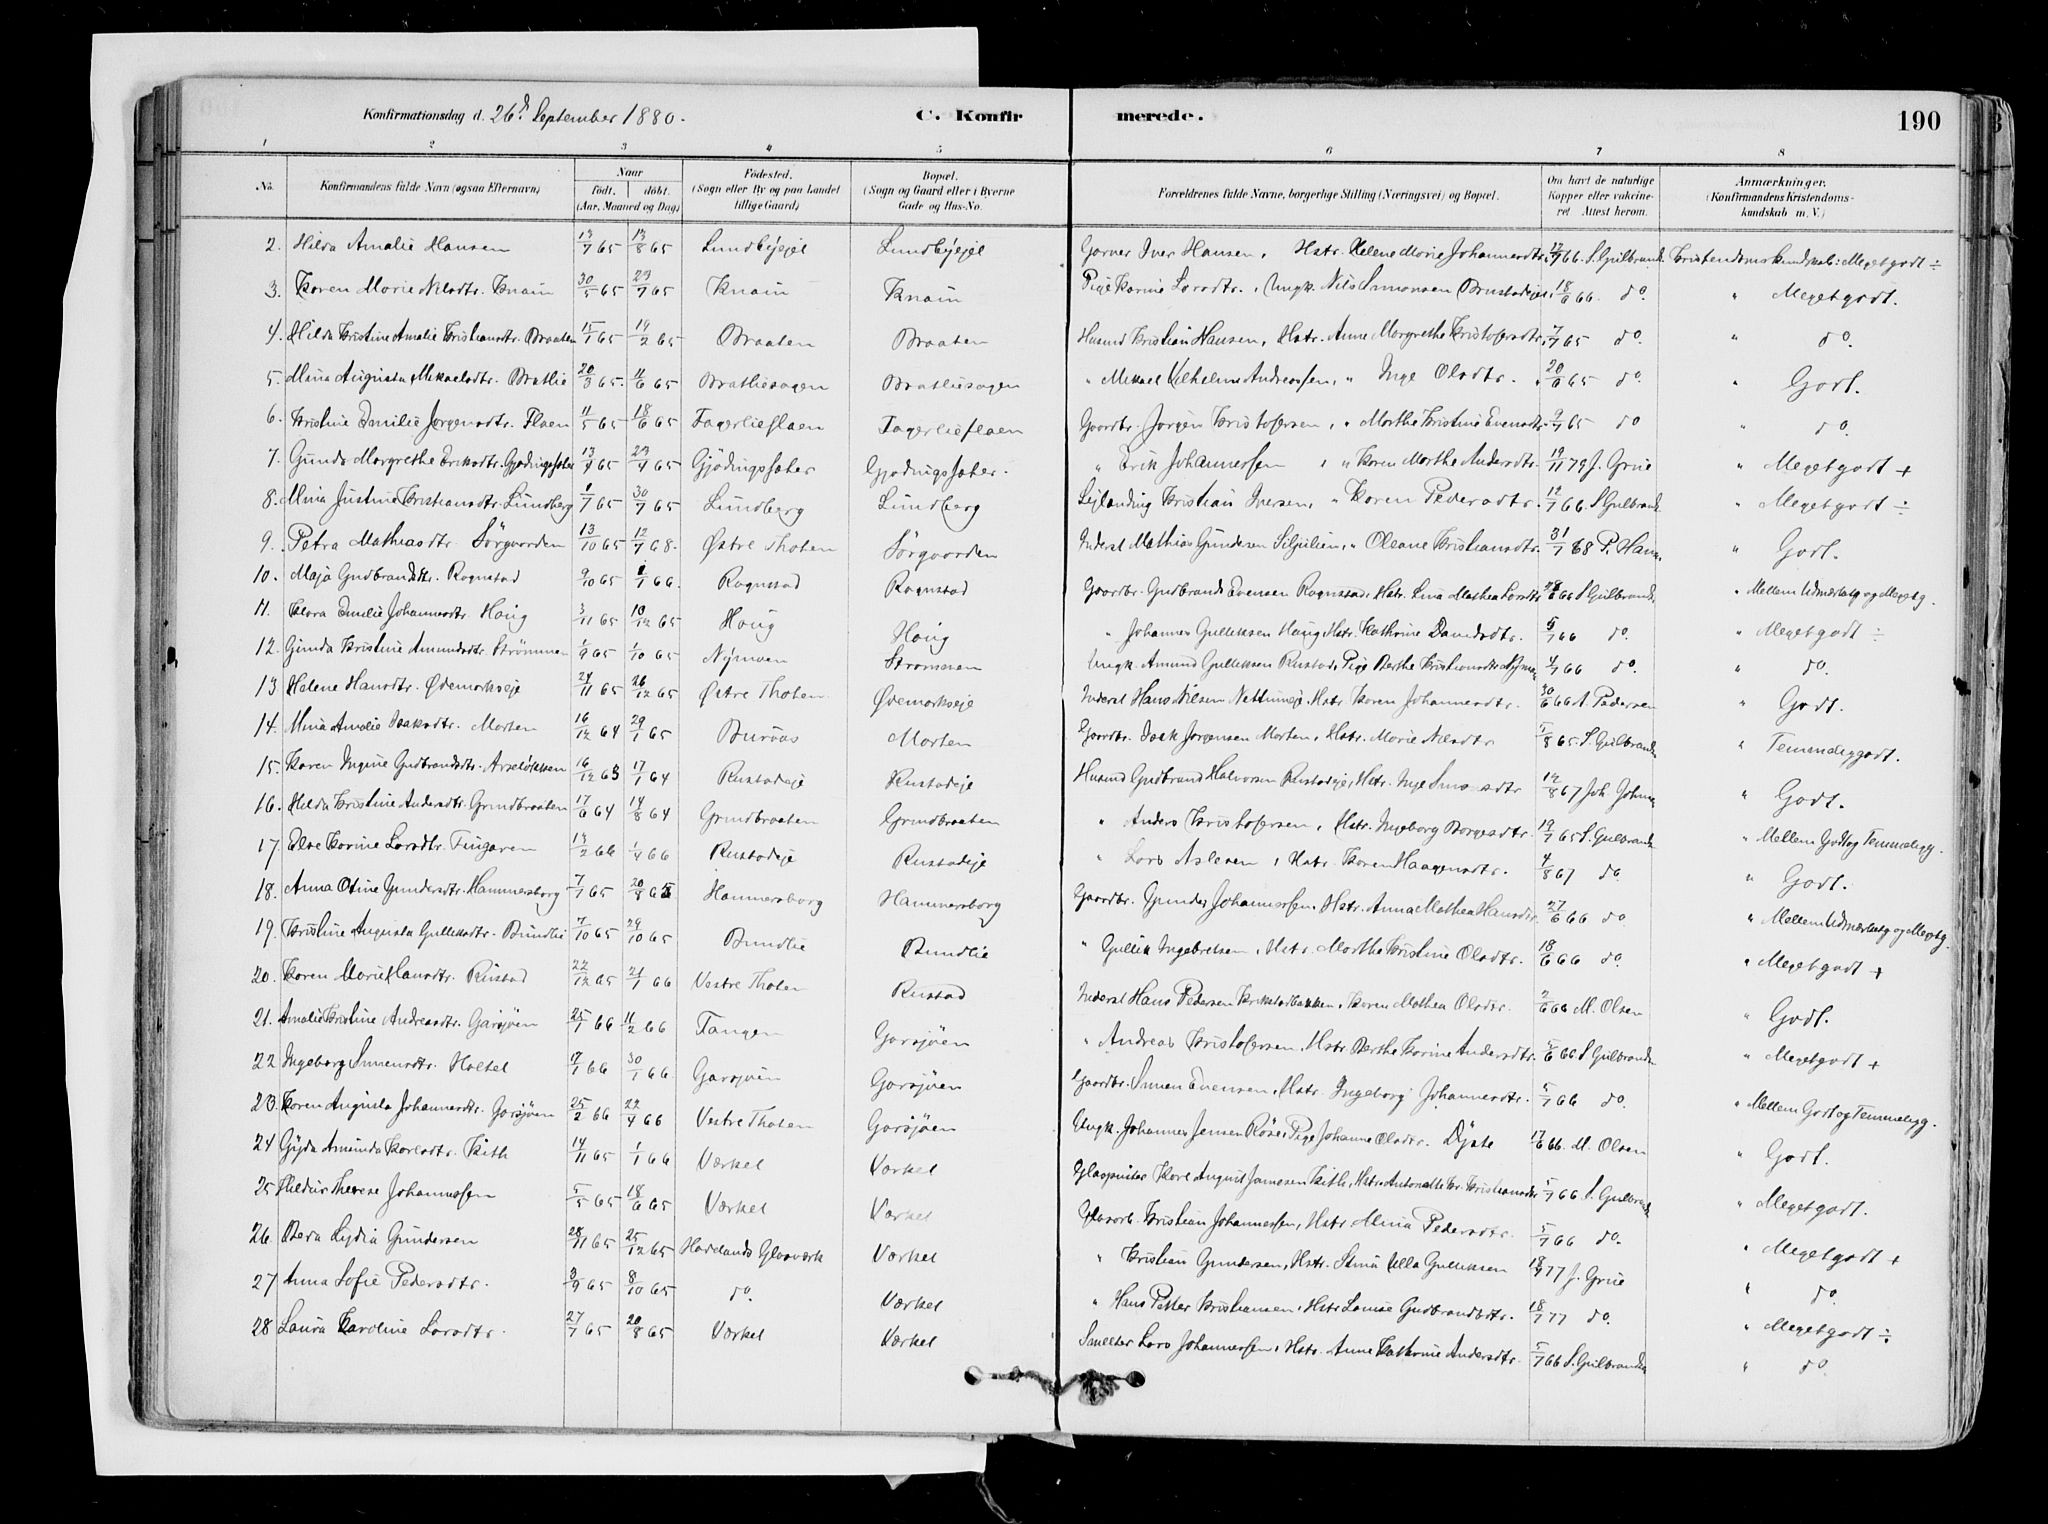 Konfirmationsdag d. 26d September 1880. C. Konfirmerede. 190
1 2 3 4 5 6 7 8
No. Konfirmandens fulde Navn (ogsaa Efternavn) Naar født. døbt. (Aar, Maaned og Dag) Fødested. (Sogn eller By og paa Landet tillige Gaard) Bopæl. (Sogn og Gaard eller i Byerne Gade og Hus-No. Forældrenes fulde Navne, borgerlige Stilling (Næringsvei) og Bopæl. Om havt de naturlige Kopper eller vakcineret Attest herom. Anmærkninger. (Konfirmandens Kristendomskundskab m. V.)
2. Hilda Amalie Hansen 13/7 65 13/8 65 Lundbyejet Lundbyejet Garver Iver Hansen, Hstr. Helene Marie Johannesdtr. 12/7 66. S. Gulbrand. Kristendomskundskab: Megetgodt ÷
3. Karen Marie Nilsdtr. Knain 30/5 65 23/7 65 Knain Knain Pige Karine Larsdtr., Ungk. Nils Simensen Brustadejet 18/6 66. do. " Megetgodt.
4. Hilda Kristine Amalie Kristiansdtr. Braaten 15/1 65 19/2 65 Braaten Braaten Husmd Kristian Hansen, Hstr. Anne Margrethe Kristofersdtr. 7/7 65 do. " do.
5. Mina Augusta Mikaelsdtr. Bratlie 20/3 65. 11/6 65 Bratliesagen Bratliesagen " Mikael Vilhelm Andreassen, " Inge Olsdtr. 20/6 65 do. " Godt.
6. Kristine Emilie Jørgensdtr. Flaen 11/5 65 18/6 65 Fagerlieflaen Fagerlieflaen Gaardbr. Jørgen Kristofersen, " Marthe Kristine Evensdtr. 9/7 65 do " do.
7. Gunda Margrethe Eriksdtr. Gjødingsæter 13/4 65 23/4 65 Gjødingsæter Gjødingsæter. " Erik Johannessen, " Karen Marthe Andersdtr. 19/11 79 J. Grue " Megetgodt +
8. Mina Justine Kristiansdtr. Lundberg 1/7 65 30/7 65 Lundberg Lundberg Lejlænding Kristian Iversen, " Karen Pedersdtr. 12/7 66. S. Gulbrand. " Megetgodt ÷
9. Petra Mathiasdtr. Sørgaarden 13/10 65 12/7 68. Østre Thoten Sørgaarden Inderst Mathias Gundersen Siljulien, " Oleane Kristiansdtr. 31/7 68 P. Hans. " Godt.
10. Maja Gudbrandsdtr. Rognstad 9/10 65 1/1 66. Rognstad Rognstad Gaardbr. Gudbrand Evensen Rognstad, Hstr. Lina Mathea Larsdtr. 28/6 66 S. Gulbrands. " Mellem Udmærketg og Megetg.
11. Klara Emilie Johannesdtr. Haug 3/11 65 10/12 65 Haug Haug " Johannes Gulliksen Haug Hstr. Kathrine Davidsdtr. 5/7 66 do. " Megetgodt ÷
12. Gunda Kristine Amundsdtr. Strømmen 1/9 65 1/10 65 Nymoen Strømmen Ungk. Amund Gulliksen Rustad, Pige Berthe Kristiansdtr. Nymoen 4/7 66 do. " do.
13 Helene Hansdtr. Ødemarkseje 24/11 65 26/12 65 Østre Thoten Ødemarkseje Inderst Hans Nilsen Nettumeje, Hstr. Karen Johannesdtr. 30/6 66 A. Pedersen " Godt.
14. Mina Amalie Isaksdtr. Morten 16/12 64 29/1 65 Buraas Morten Gaardbr. Isak Jørgensen Morten, Hstr. Marie Nilsdtr 5/8 65. S. Gulbrands. " Temmeliggodt.
15. Karen Ingine Gudbrandsdtr. Arseløkken 16/12 63 17/1 64 Rustadeje Rustadeje Husmd Gudbrand Halvorsen Rustadeje, Hstr. Inge Simensdtr 12/8 67 Joh. Johns. " Godt.
16. Hilda Kristine Andersdtr. Grindbraaten 17/6 64 14/8 64 Grindbraaten Grindbraaten " Anders Kristofersen, Hstr. Ingeborg Borgesdtr. 19/7 65 S. Gulbrands. " Mellem Godt og Temmeligg.
17. Else Karine Larsdtr. Tingaren 13/2 66 1/4 66 Rustadeje Rustadeje " Lars Aslesen, Hstr. Karen Haagensdtr. 4/8 67 do. " Godt.
18. Anna Otine Gundersdtr. Hammersborg 7/7 65 20/8 65 Hammersborg Hammersborg Gaardbr. Gunder Johannessen, Hstr. Anna Mathea Hansdtr. 27/6 66 do. " Mellem Udmærketg og Megetg.
19. Kristine Augusta Gulliksdtr. Bundlie 7/10 65 29/10 65 Bundlie Bundlie " Gullik Ingebretsen, Hstr. Marthe Kristine Olsdtr. 18/6 66 do. " Megetgodt +
20. Karen Marie Hansdtr. Rustad 22/12 65 21/1 66 Vestre Thoten Rustad Inderst Hans Pedersen Krikstadbakken, Karen Mathea Olsdtr. 2/6 66 M. Olsen " Godt.
21. Amalie Kristine Andreasdtr. Garsjøen 25/1 66 11/2 66 Tangen Garsjøen " Andreas Kristofersen, Hstr. Berthe Karine Andersdtr. 5/6 66 S. Gulbrands. " Megetgodt +
22 Ingeborg Simensdtr. Holtet 17/1 66 30/1 66 Garsjøen Garsjøen Gaardbr. Simen Evensen, Hstr. Ingeborg Johannesdtr. 5/7 66 do. " Mellem Godt og Temmeligg.
23. Karen Augusta Johannesdtr. Garsjøen 25/2 66 22/4 66 Vestre Thoten Garsjøen Ungk. Johannes Jensen Røise, Pige Johanne Olsdtr. Dyste 17/6 66. M. Olsen " Godt.
24 Gyda Amunda Karlsdtr. Kith 14/11 65 1/1 66 Værket Værket Glaspuster Karl August Jamesen Kith, Hstr. Antonette Kr. Kristiansdtr. 5/7 66 S. Gulbrands " Megetgodt.
25 Hildur Therese Johannessen 5/5 65 18/6 65 Værket Værket Glasarb. Kristian Johannessen, Hstr. Mina Pedersdtr. 5/7 66 do. " Megetgodt +
26. Bera Lydia Gundersen 28/11 65 25/12 65 Hadelands Glasværk Værket " Kristian Gundersen, Hstr. Stina Ulla Gulliksen 18/7 77 J. Grue " do.
27 Anna Sofie Pedersdtr. 3/9 65 8/10 65 do. Værket " Hans Petter Kristiansen, Hstr. Louise Gudbrandsdtr. 18/7 77 do. " Megetgodt ÷
28 Laura Karoline Larsdtr. 27/7 65 20/8 65 Værket Værket Smelter Lars Johannessen, Hstr. Anne Kathrine Andersdtr. 5/7 66 S. Gulbrands " do